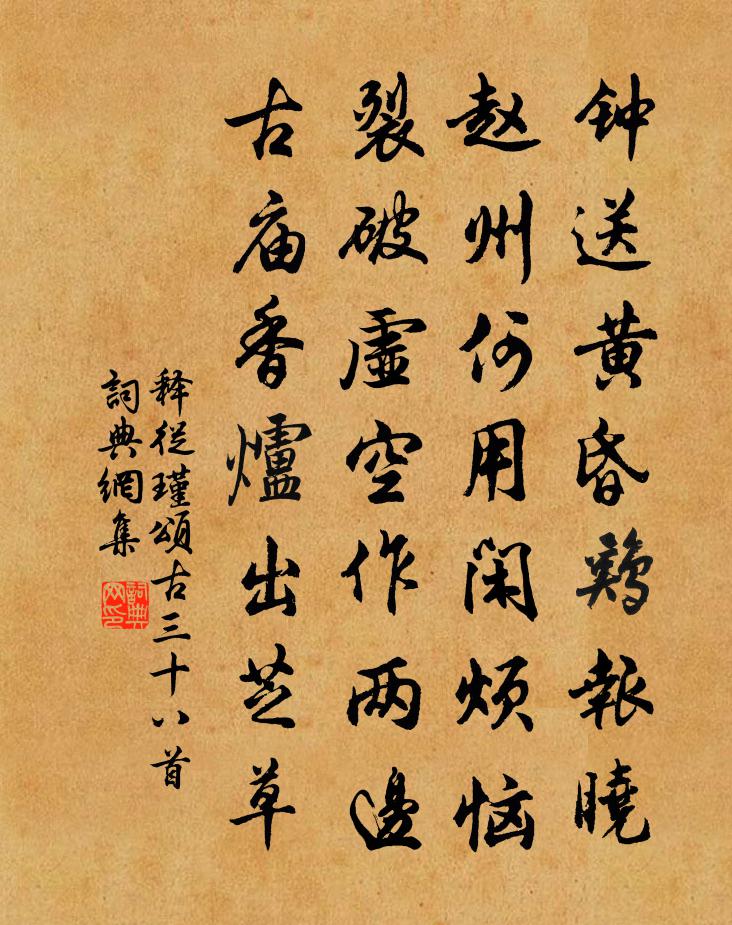 钟送黄昏鷄报曉
赵州何用闲烦恼
裂破虚空作两邊
古庙香爐出芝草
释從瑾頌古三十八首
詞典網集
詞典网印